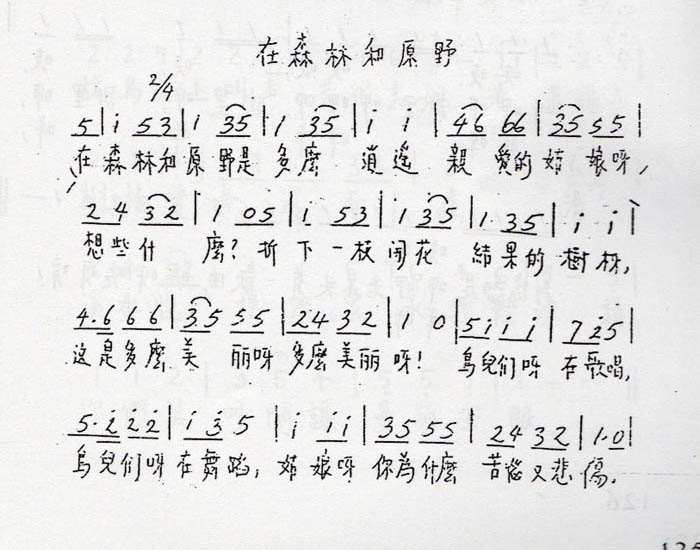 在森林和原野
2/4
5|i 53|1 35|1 35|i i|46 66|35 55|
在森林和原野是多麽 逍遥 親愛的姑娘呀,
24 32|1 05|1 53|1 35|1 35|i i|
想些什麽? 折下一枝闹花 結果的樹林,
4·6 66|35 55|24 32|1 0|5i i i|7 2 5|
这是多麽美丽呀多麽美丽呀! 鸟兒们呀在歌唱,
5·2 22|i 3 5|i ii|35 55|24 32|1·0|
鸟兒们呀在舞蹈, 姑娘呀你為什麽 苦恼又悲傷.
126